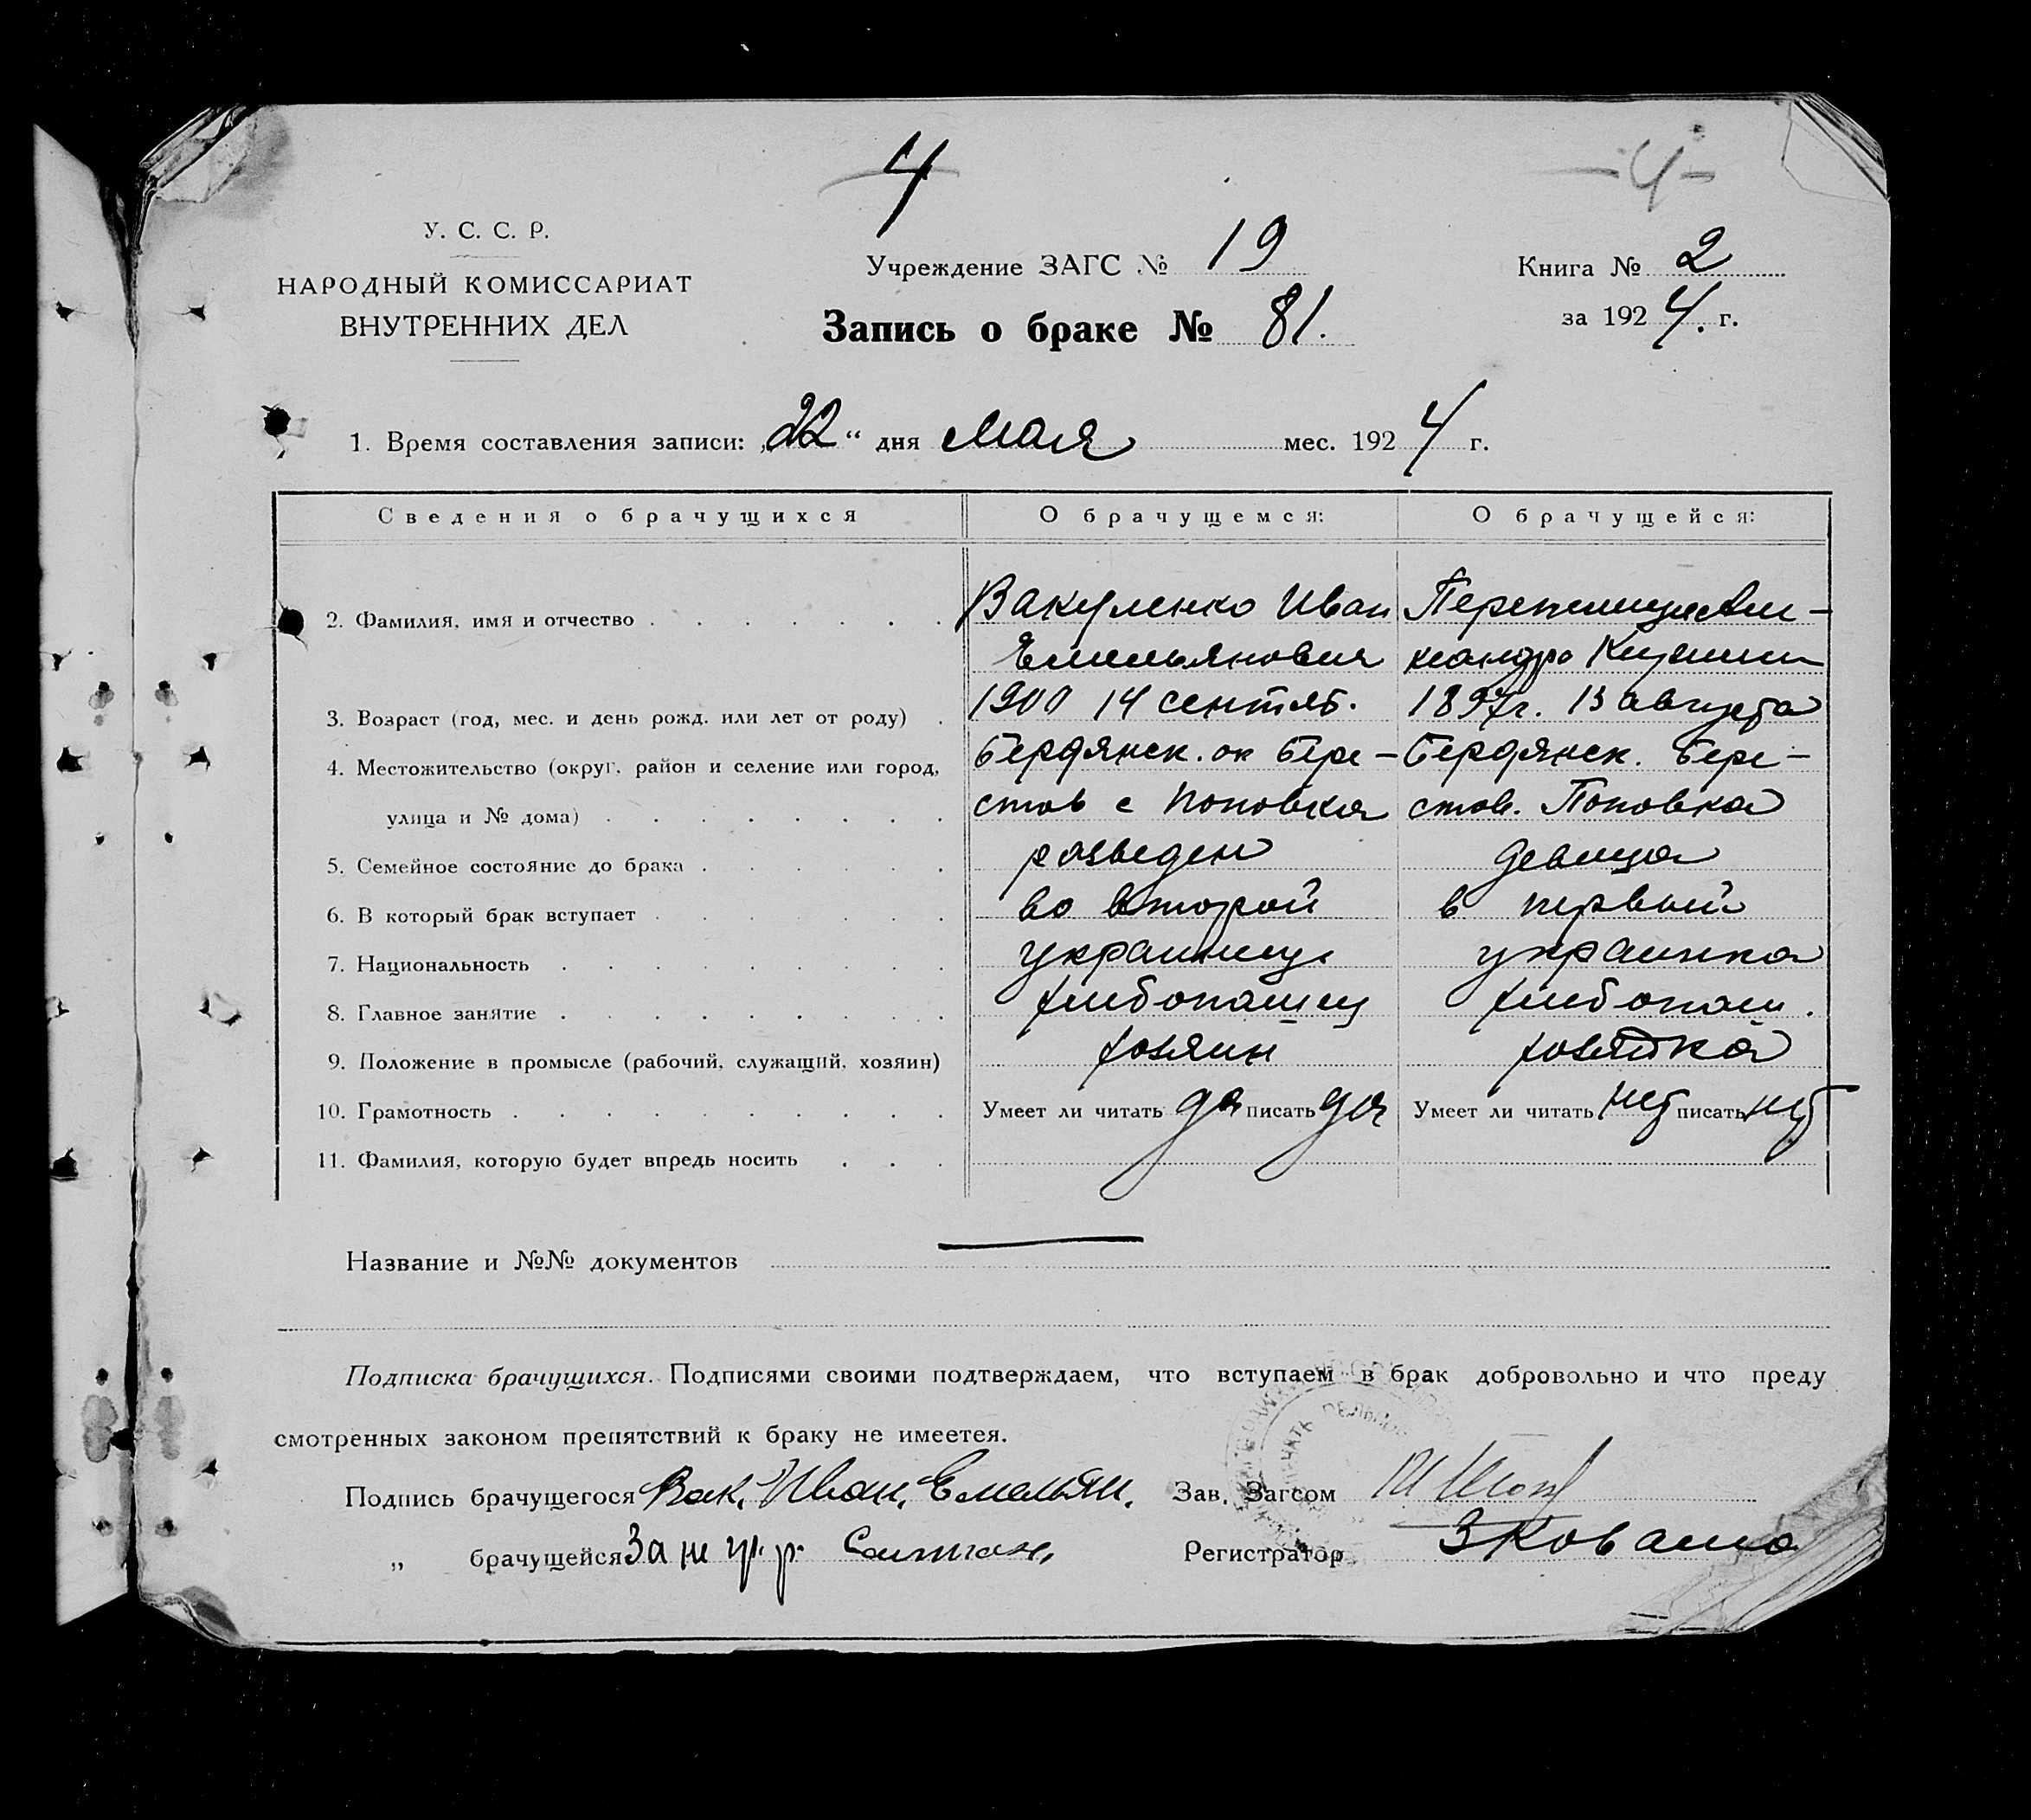 4
-4-
У. С. С. Р.
НАРОДНЫЙ КОМИССАРИАТ
ВНУТРЕННИХ ДЕЛ
Учреждение ЗАГС № 19
Книга № 2
Запись о браке № 81.
за 1924. г.
1. Время составления записи: „22“ дня мая мес. 1924 г.
Сведения о брачущихся О брачущемся: О брачущейся:
2. Фамилия, имя и отчество Вакуленко Иван
Емельянович
3. Возраст (год, мес. и день рожд. или лет от роду) 1900 14 сентяб. 1897г. 13 августа
4. Местожительство (округ, район и селение или город, Бердянск. ок Бере- Бердянск. Бере-
улица и № дома) стов с Поповка стов. Поповка
5. Семейное состояние до брака разведен девица
6. В который брак вступает во второй в первый
7. Национальность украинец украинка
8. Главное занятие хлебопашец хлебопаш.
9. Положение в промысле (рабочий, служащий, хозяин) хозяин хозяйка
10. Грамотность Умеет ли читать да писать да Умеет ли читать нет писать нет
11. Фамилия, которую будет впредь носить
Название и №№ документов
Подписка брачущихся. Подписями своими подтверждаем, что вступаем в брак добровольно и что преду
смотренных законом препятствий к браку не имеетея.
Подпись брачущегося Вак. Иван. Емельян. Зав. Загсом
„ брачущейся За не гр. р. Регистратор